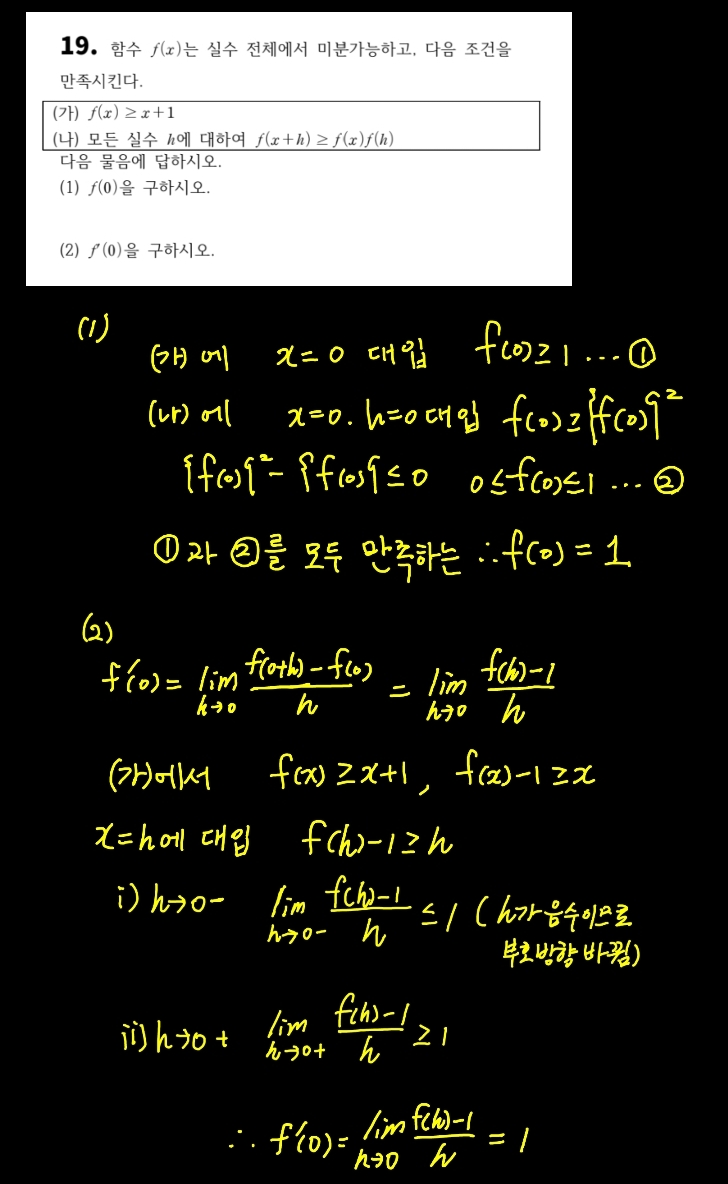 19. 함수 f(x)는 실수 전체에서 미분가능하고, 다음 조건을
만족시킨다.
(가) f(x) ≥ x+1
(나) 모든 실수 h에 대하여 f(x+h) ≥ f(x)f(h)
다음 물음에 답하시오.
(1) f(0)을 구하시오.
(2) f′(0)을 구하시오.
(1)
(가)에 x=0 대입 f(0)≥1 ... ①
(나)에 x=0. h=0 대입 f(0)≥{f(0)}²
{f(0)}²-{f(0)}≤0 0≤f(0)≤1 ... ②
①과 ②를 모두 만족하는 ∴f(0)=1
(2)
f′(0)= lim h→0 f(0+h)-f(0)/h = lim h→0 f(h)-1/h
(가)에서 f(x)≥x+1, f(x)-1≥x
x=h에 대입 f(h)-1≥h
i) h→0- lim h→0- f(h)-1/h ≤1 (h가 음수이므로
부호방향 바뀜)
ii) h→0+ lim h→0+ f(h)-1/h ≥1
∴ f′(0)= lim h→0 f(h)-1/h = 1